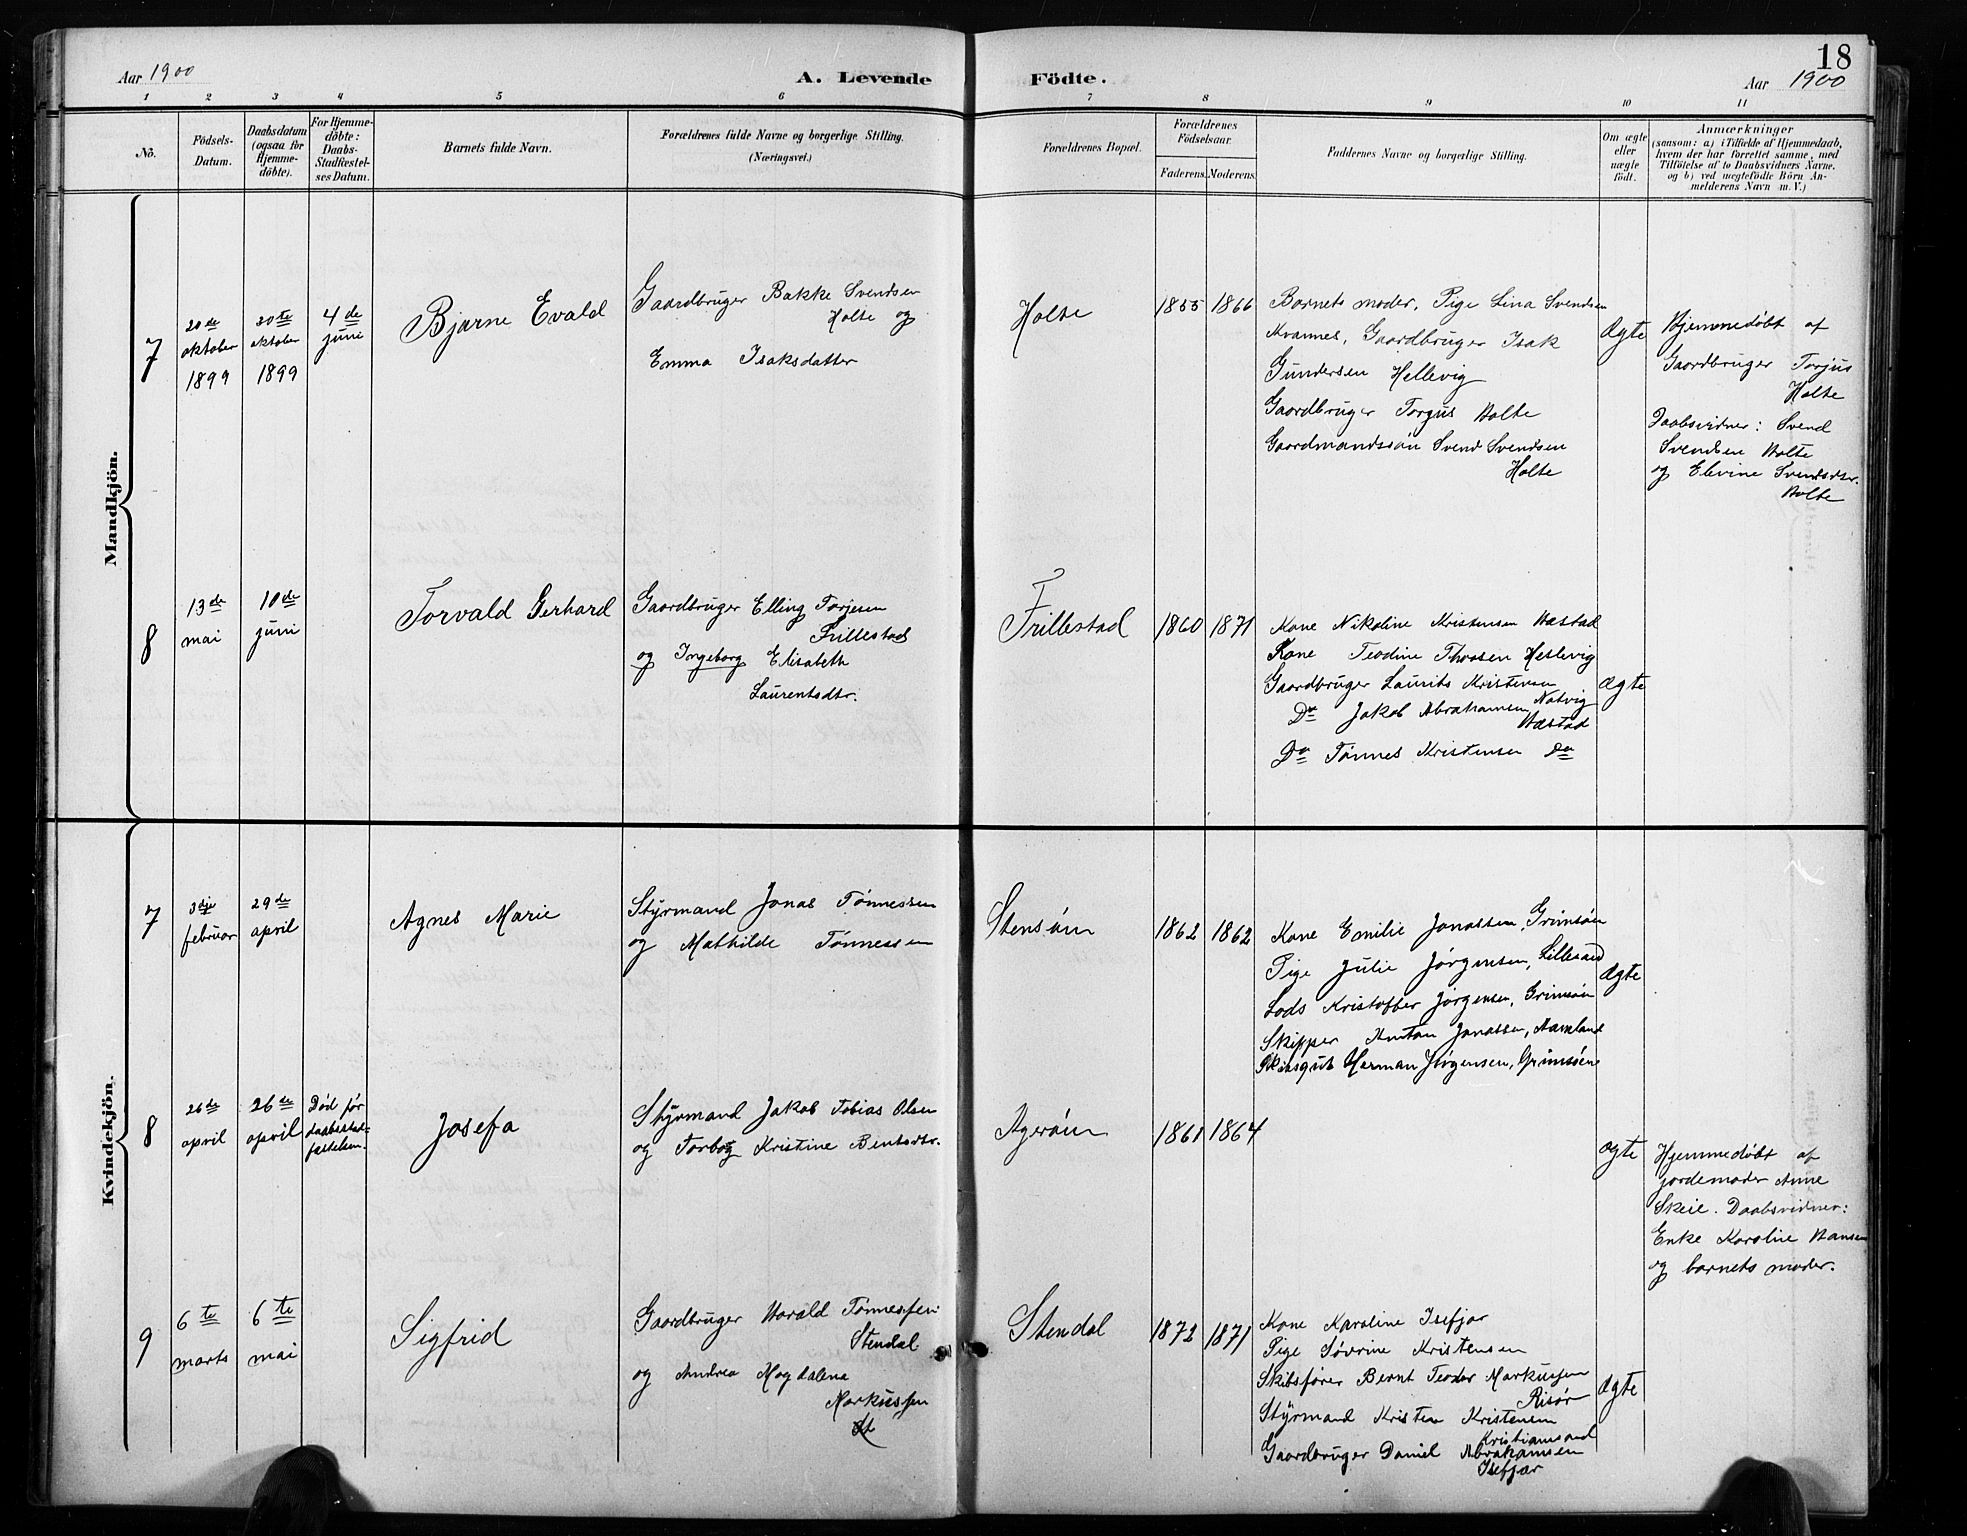 18
Aar 1900
A. Levende
Födte.
Aar 1900
1 2 3 4 5 6 7 8 9 10 11
No.
Födsels-
Datum.
Daabsdatum
(ogsaa for
Hjemme-
döbte).
For Hjemme-
döbte:
Daabs-
Stadfæstel-
ses Datum.
Barnets fulde Navn.
Forældrenes fulde Navne og borgerlige Stilling.
(Næringsvei.)
Forældrenes Bopæl.
Forældrenes
Födselsaar.
Faderens. Moderens.
Faddernes Navne og borgerlige Stilling.
Om ægte
eller
uægte
födt.
Anmærkninger
(saasom: a) i Tilfælde af Hjemmedaab,
hvem der har forrettet samme, med
Tilföielse af to Daabsvidners Navne,
og b) ved uegtefödte Börn An-
melderens Navn m. V.)
Mandkjön.
7
20de
oktober
1899
30te
oktober
1899
4de
juni
Bjarne Evald
Gaardbruger Bakke Svendsen
Holte og
Emma Isaksdatter
Holte
1855
1866
Barnets moder, Pige Lina Svendsen
Kvannes, Gaardbruger Isak
Gundersen Hellevig
Gaardbruger Torgus Holte
Gaardmandssøn Svend Svendsen
Holte
Ægte
Hjemmedøbt af
Gaardbruger Torjus
Holte
Daabsvidner: Svend
Svendsen Holte
og Elevine Svendsdtr.
Holte
8
13de
mai
10de
juni
Torvald Gerhard
Gaardbruger Elling Torjesen
Frillestad
og Ingeborg Elisabeth
Laurentsdtr.
Frillestad
1860
1871
Kone Nikoline Kristensen Hæstad
Kone Teodine Thorsen Heslevig
Gaardbruger Laurits Kristensen
Natvig
Do Jakob Abrahamsen
Hæstad
Do Tønnes Kristensen Do
Ægte
Kvindekjön.
7
3dje
februar
29de
april
Agnes Marie
Styrmand Jonas Tønnessen
og Mathilde Tønnessen
Stensøen
1862
1862
Kone Emilie Jonassen, Grimsøen
Pige Julie Jørgensen, Lillesand
Lods Kristoffer Jørgensen, Grimsøen
Skipper Anton Jonassen, Aamland
Skibsgut Herman Jørgensen, Grimsøen
Ægte
8
26de
april
26de
april
Død før
daabsstad-
fæstelsen.
Josefa
Styrmand Jakob Tobias Olsen
og Torborg Kristine Bentsdtr.
Agerøen
1861
1864
Ægte
Hjemmedøbt af
jordemoder Anne
Skeie. Daabsvidner:
Enke Karoline Hansen
og barnets moder.
9
6te
marts
6te
mai
Sigfrid
Gaardbruger Harald Tønnessen
Stendal
og Andrea Magdalena
Markussen
Stendal
1872
1871
Kone Karoline Isefjær
Pige Søvrine Kristensen
Skibsfører Bernt Teodor Markussen
Risør
Styrmand Kristen Kristensen
Kristiansand
Gaardbruger Daniel Abrahamsen
Isefjær
Ægte